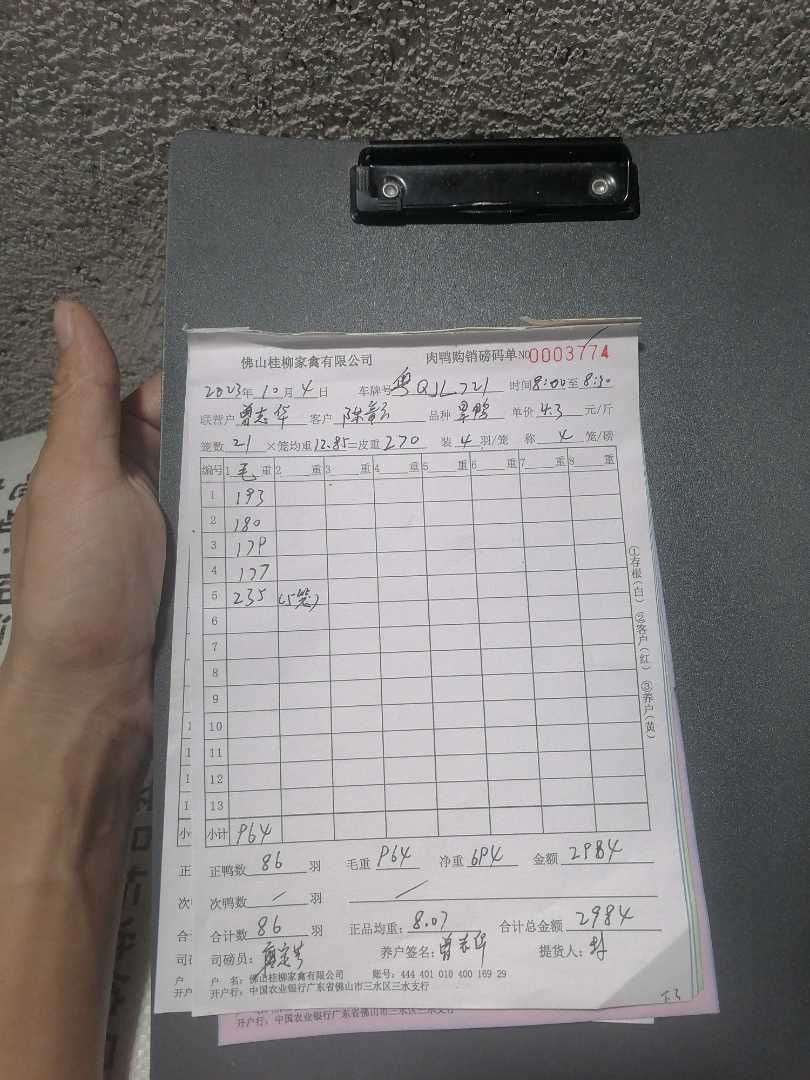 佛山桂柳家禽有限公司 肉鸭购销磅码单 NO 0003774
2023年 10月 4日 车牌号 粤QJL721 时间 8:00至 8:30
联营户 曾志华 客户 品种 单价 4.3 元/斤
笼数 21 ×笼均重 12.85=皮重 270 装 4 羽/笼 称 4 笼/磅
编号 1 毛 重 2 重 3 重 4 重 5 重 6 重 7 重 8 重
1 193
2 180
3 179
4 177
5 235 (5笼)
6
7
8
9
10
11
12
13
小计 964
正鸭数 86 羽 毛重 964 净重 694 金额 2984
次鸭数 / 羽 /
合计数 86 羽 正品均重: 8.07 合计总金额 2984
司磅员: 养户签名: 曾志华 提货人:
户 名: 佛山桂柳家禽有限公司 账号: 444 401 010 400 169 29
开户行: 中国农业银行广东省佛山市三水区三水支行
①存根(白) ②客户(红) ③养户(黄)
开户行: 中国农业银行广东省佛山市三水区三水支行